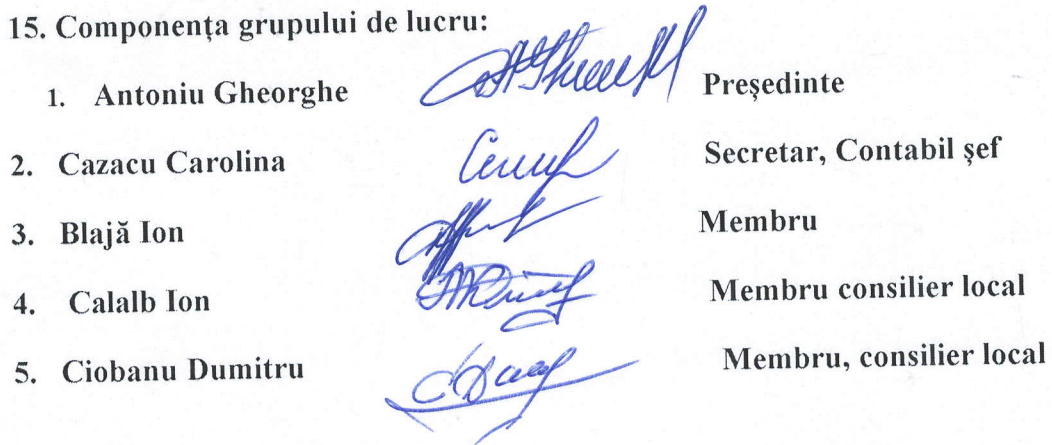 15. Componența grupului de lucru:
1. Antoniu Gheorghe Președinte
2. Cazacu Carolina Secretar, Contabil șef
3. Blajă Ion Membru
4. Calalb Ion Membru consilier local
5. Ciobanu Dumitru Membru, consilier local